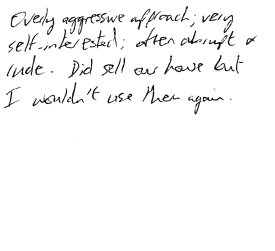 Overly aggressive approach; very
self-interested; often abrupt &
rude. Did sell our house but
I wouldn't use them again.